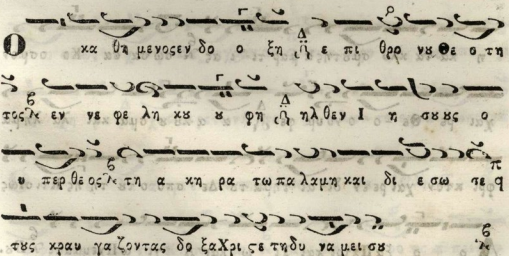 Ο κα θη μενοσεν δο ο ξη Δ ε πι θρο νου Θε ο τη
τος εν νε φε λη κου ου φη Δ ηλθεν Ι η σους ο
υ περ θε ος τη α κη ρα τω πα λαμη και δι ε σω σε
τους κραυ γα ζοντας δο ξα Χρι ϛε τη δυ να μει σου